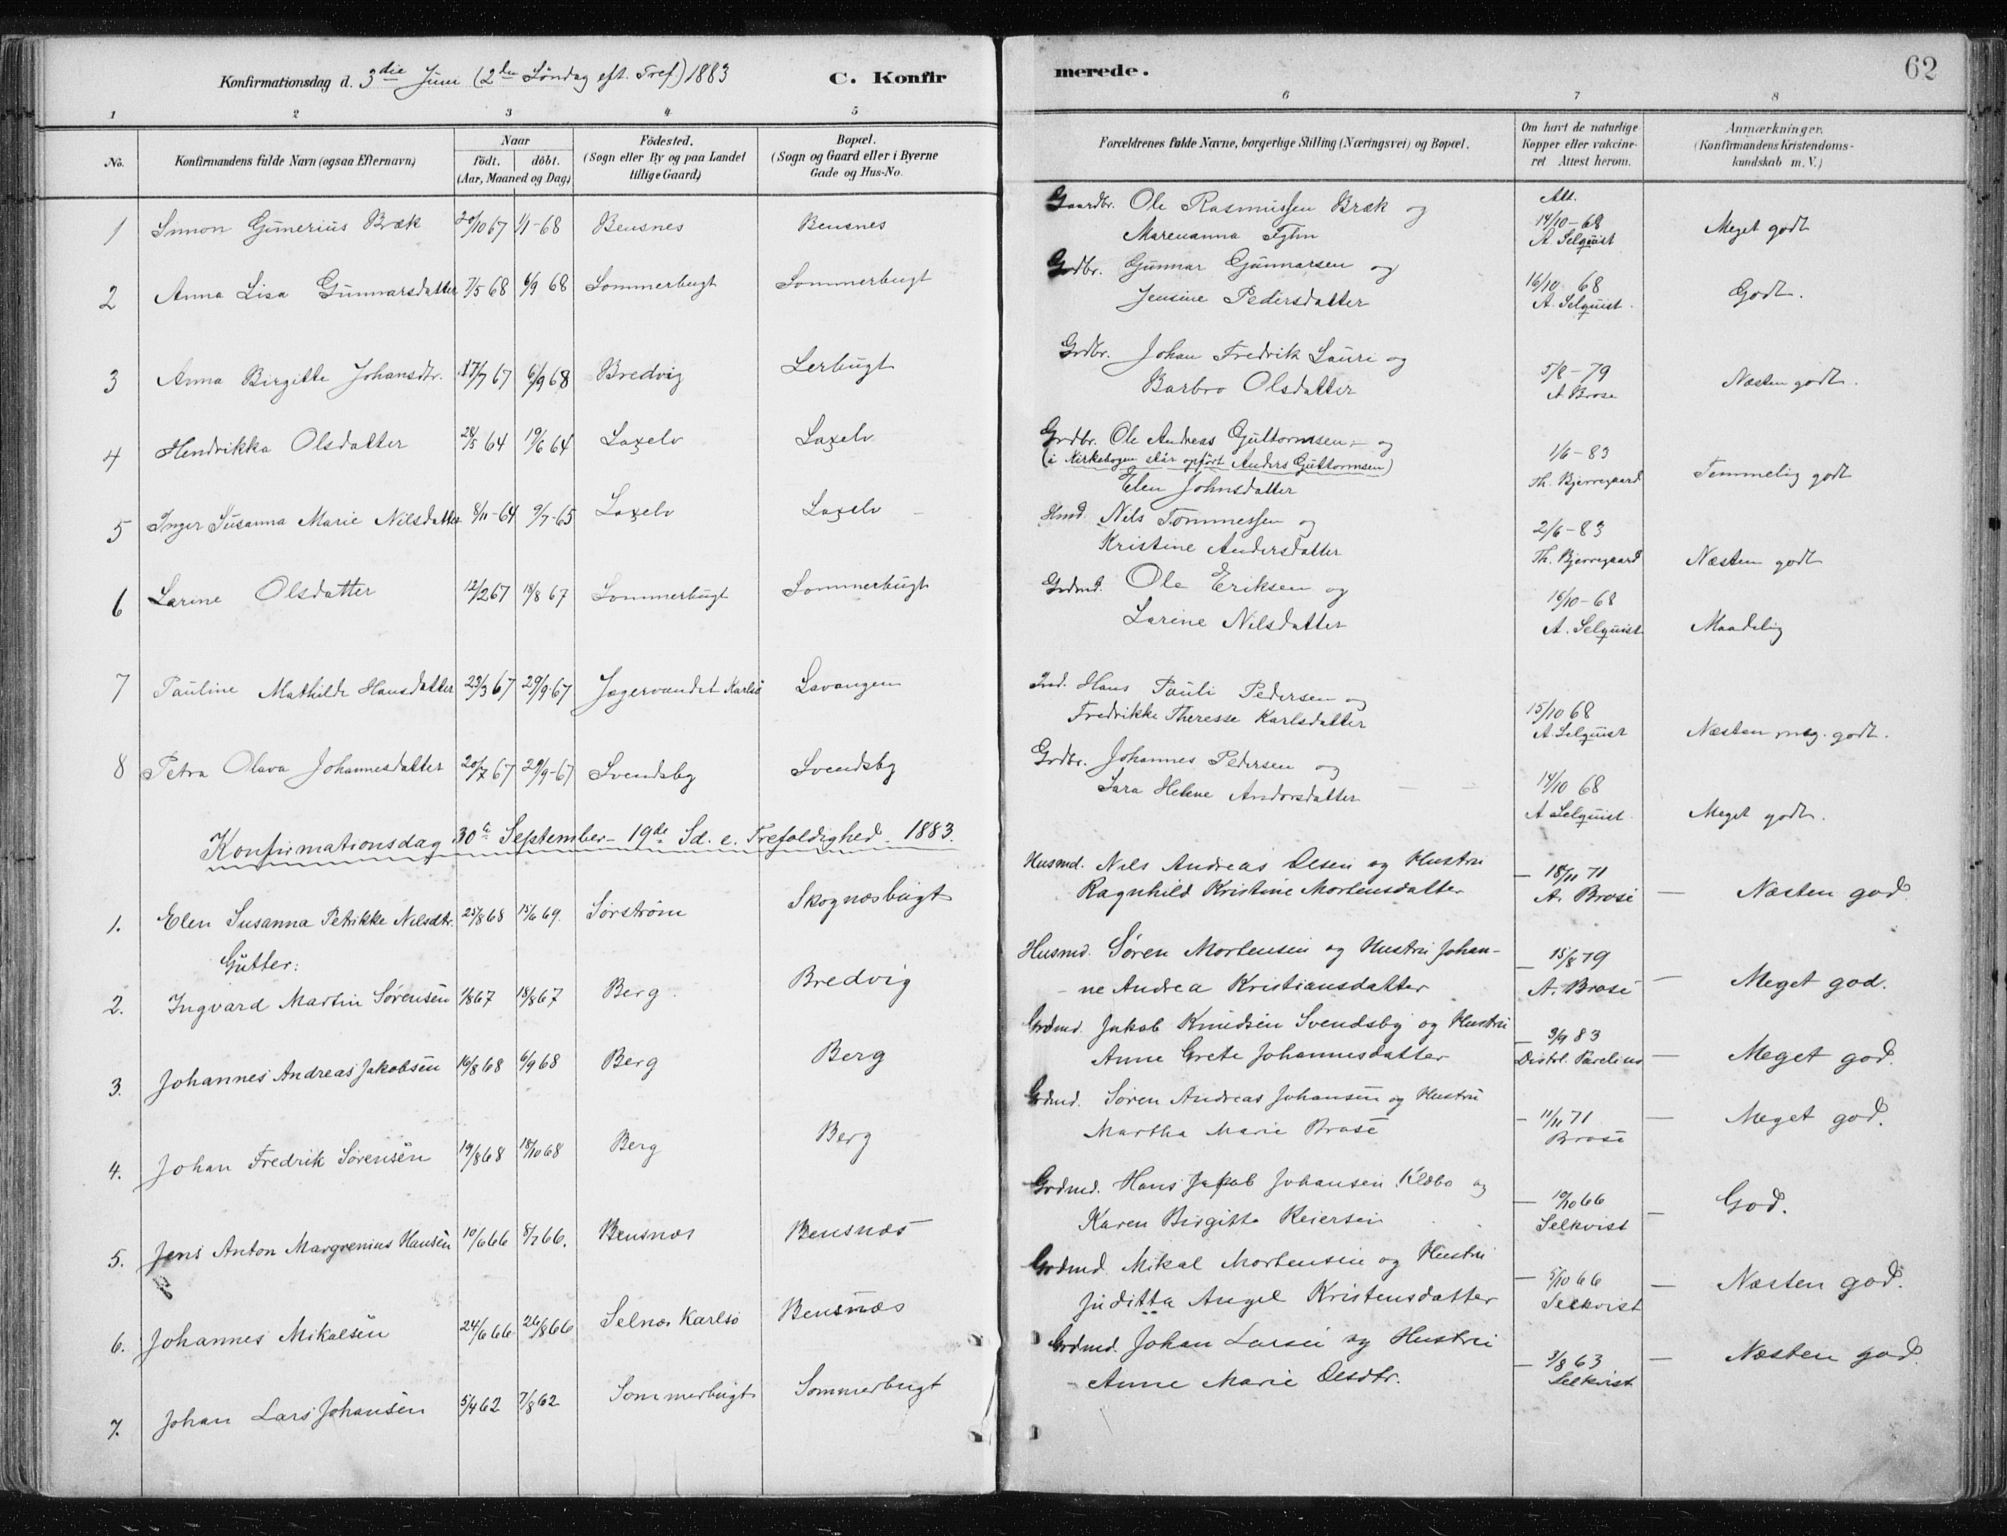 Konfirmationsdag d. 3die Juni (2den Söndag eft. Tref) 1883 C. Konfirmerede. 62
1 2 3 4 5 6 7 8
No. Konfirmandens fulde Navn (ogsaa Efternavn) Naar födt. döbt. (Aar, Maaned og Dag) Födested. (Sogn eller By og paa Landet tillige Gaard) Bopæl. (Sogn og Gaard eller i Byerne Gade og Hus-No. Forældrenes fulde Navne, borgerlige Stilling (Næringsvei) og Bopæl. Om havt de naturlige Kopper eller vakcineret Attest herom. Anmærkninger. (Konfirmandens Kristendomskundskab m. V.)
1 Simon Gunerius Bræk 20/10 67 1/1-68 Bensnes Bensnes Gaardbr. Ole Rasmussen Bræk og
Marenanna Att. 14/10-68 A. Selquist Meget godt
2 Anna Lisa Gunnarsdatter 7/5 68 6/9 68 Sommerbugt Sommerbugt Grdbr. Gunnar Gunnarsen og
Jensine Pedersdatter 16/10 68 A. Selquist. Godt.
3 Anna Birgitte Johansdtr. 17/7 67 6/9 68 Bredvig Lerbugt Grdbr. Johan Fredrik Lauri og
Barbro Olsdatter 5/8-79 A Brose Næsten godt.
4 Hendrikka Olsdatter 28/5 64 19/6 64 Laxelv Laxelv Grdbr. Ole Andreas Guttormsen - og
(i Kirkebogen står opført Anders Guttormsen)
Elen Johnsdatter 1/6-83 Th. Bjerregaard Temmelig godt
5 Inger Susanna Marie Nilsdatter 8/11-64 9/7-65 Laxelv Laxelv Hmd. Nils Tommessen og
Kristine Andersdatter 2/6-83 Th. Bjerregaard Næsten godt
6 Larine Olsdatter 12/2 67 18/8 67 Sommerbugt Sommerbugt Grdmd. Ole Eriksen og
Larine Nilsdatter 16/10-68 A. Selquist Maadelig
7 Pauline Mathilde Hansdatter 23/3 67 29/9-67 Jægervandet Karlsö Lavangen Ind. Hans Pauli Pedersen og
Fredrikke Theresse Karlsdatter 15/10 68 A. Selquist Næsten meg. godt.
8 Petra Olava Johannesdatter 20/7 67 29/9-67 Svendsby Svendsby Grdbr. Johannes Pedersen og
Sara Helene Andorsdatter 14/10 68 A Selquist Meget godt.
Konfirmationsdag 30te September - 19de Sd. e. Trefoldighed. 1883.
1. Elen Susanna Petrikke Nilsdtr. 25/8 68 15/6 69. Sörström Skognæsbugt Husmd. Nils Andreas Olsen og Hustru
Ragnhild Kristine Mortensdatter - 18/11 71 A. Brose - Næsten god
Gutter:
2. Ingvard Martin Sørensen 1/8 67 18/8 67 Berg. Bredvig Husmd. Søren Mortensen og Hustru Johan-
ne Andrea Kristiansdatter - 15/8 79 A. Brose - Meget god.
3. Johannes Andreas Jakobsen 16/8 68 6/9 68 Berg Berg Grdmd. Jakob Knudsen Svendsby og Hustru
Anne Grete Johannesdatter - 9/9 83 Distrl. Parelius - Meget god.
4. Johan Fredrik Sörensen 19/8 68 18/10 68 Berg Berg Grdmd. Sören Andreas Johansen og Hustru
Martha Marie Brose - 11/11 71 Brose - Meget god.
5. Jens Anton Margrenius Hansen 10/6 66 8/7 66. Bensnæs Bensnæs Grdmd. Hans Jakob Johansen Klæbo og
Karen Birgitte Reiersen - 10/10 66 Selkvist - God.
6. Johannes Mikalsen 24/6 66 26/8 66 Selnæs Karlsö Bensnæs Grdmd. Mikal Mortensen og Hustru
Juditta Angel Kristensdatter - 5/10 66 Selkvist - Næsten god.
7. Johan Lars Johansen 5/4 62 7/8 62 Sommerbugt Sommerbugt Grdmd. Johan Larsen og Hustru
Anne Marie Olsdtr. - 3/8 63 Selkvist - Næsten god.